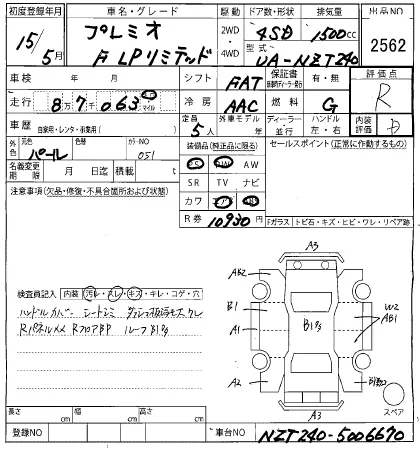 初度登録年月 車名・グレード 駆動 ドア数・形状 排気量 出品NO
15/5月 プレミオ 2WD・4WD 4SD 1500cc 2562
F LPリミテッド 型式 UA-NZT240
車検 年 月 シフト FAT 保証書 有・無 評価点
走行 8万7千063 マイル 冷房 AAC 燃料 G R
車歴 自家用・レンタ・事業用( ) 定員 5人 外車モデル 年 ディーラー・並行 ハンドル 左・右 内装評価 D
外色 元色 パール 色替 カラーNO 051 装備品(純正品に限る) セールスポイント(正常に作動するもの)
名義変更期限 月 日迄 積載 t PS PW AW
注意事項(欠品・修復・不具合箇所および状態) SR TV ナビ
カワ エアB ABS
R券 10930円 Fガラス トビ石・キズ・ヒビ・ワレ・リペア跡
A3
AB2
検査員記入 内装 汚レ・スレ・キズ・キレ・コゲ・穴
B1 W2
AB1
ハンドルカバー シートシミ
A1 B1
Rパネルメメ RフロアBP ルーフB1
A2
A3
スペア
長さ cm 幅 cm 高さ cm
登録NO 車台NO NZT240-5006670